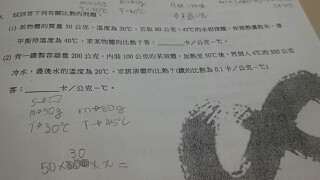 試回答下列有關比熱的問題
(1) 某物體的質量 50 公克，溫度為 30℃，若和 80 公克，45℃的水相接觸，假設無熱量散失，達
平衡時溫度為 40℃，求某物體的比熱？答：______卡／公克－℃。
(2) 有一鐵製容器重 200 公克，內裝 100 公克的某液體，加熱至 50℃後，再倒入 4℃的 200 公克
冷水，最後水的溫度為 20℃，求該液體的比熱？(鐵的比熱為 0.1 卡／公克－℃)
答：______卡／公克－℃。
m→50g m→80g
T→30℃ T→45℃
30
50× × x =